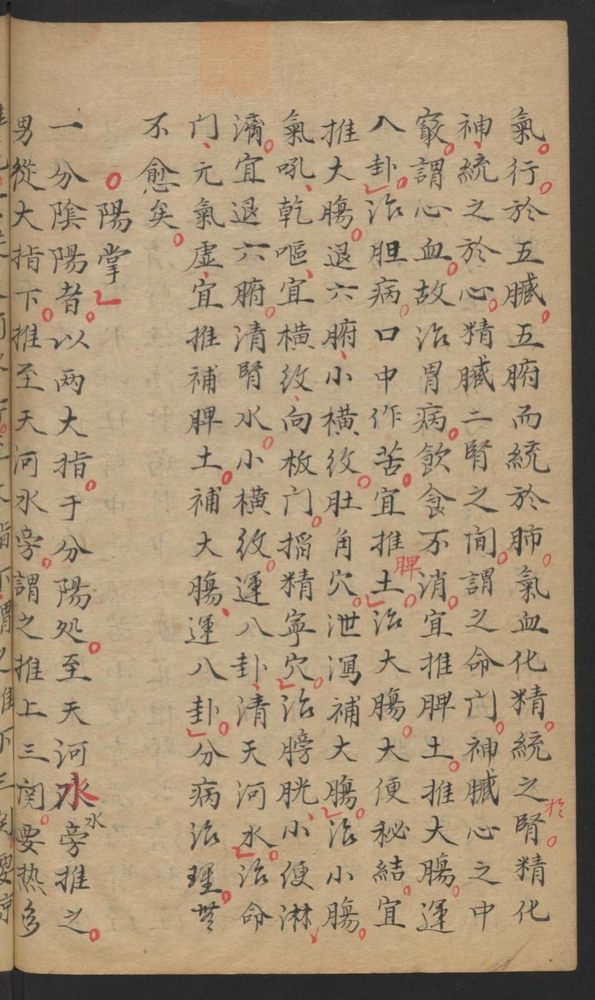 氣。行。於五臟。五腑而統於肺。氣血化精。統之於腎。精化
神、統之於心。精臟二腎之間。謂之命门。神臟心之中
竅。謂心血。故治胃病。飲食不消。宜推脾土。推大腸。運
八卦。治胆病。口中作苦。宜推脾土。治大腸。大便秘結。宜
推大腸。退六腑、小橫紋。肚角穴。泄瀉補大腸。治小腸。
氣吼、乾嘔、宜橫紋、向板门。搯精寧穴。治膀胱、小便淋、
濁。宜退六腑。清腎水。小橫紋。運八卦、清天河水。治命
门、元氣虛、宜推補脾土。補大腸、運八卦。分病治理。無
不愈矣。
○陽掌
一分陰陽者。以两大指。于分陽処。至天河水旁推之。
男從大指下。推至天河水旁。謂之推上三関。要热多